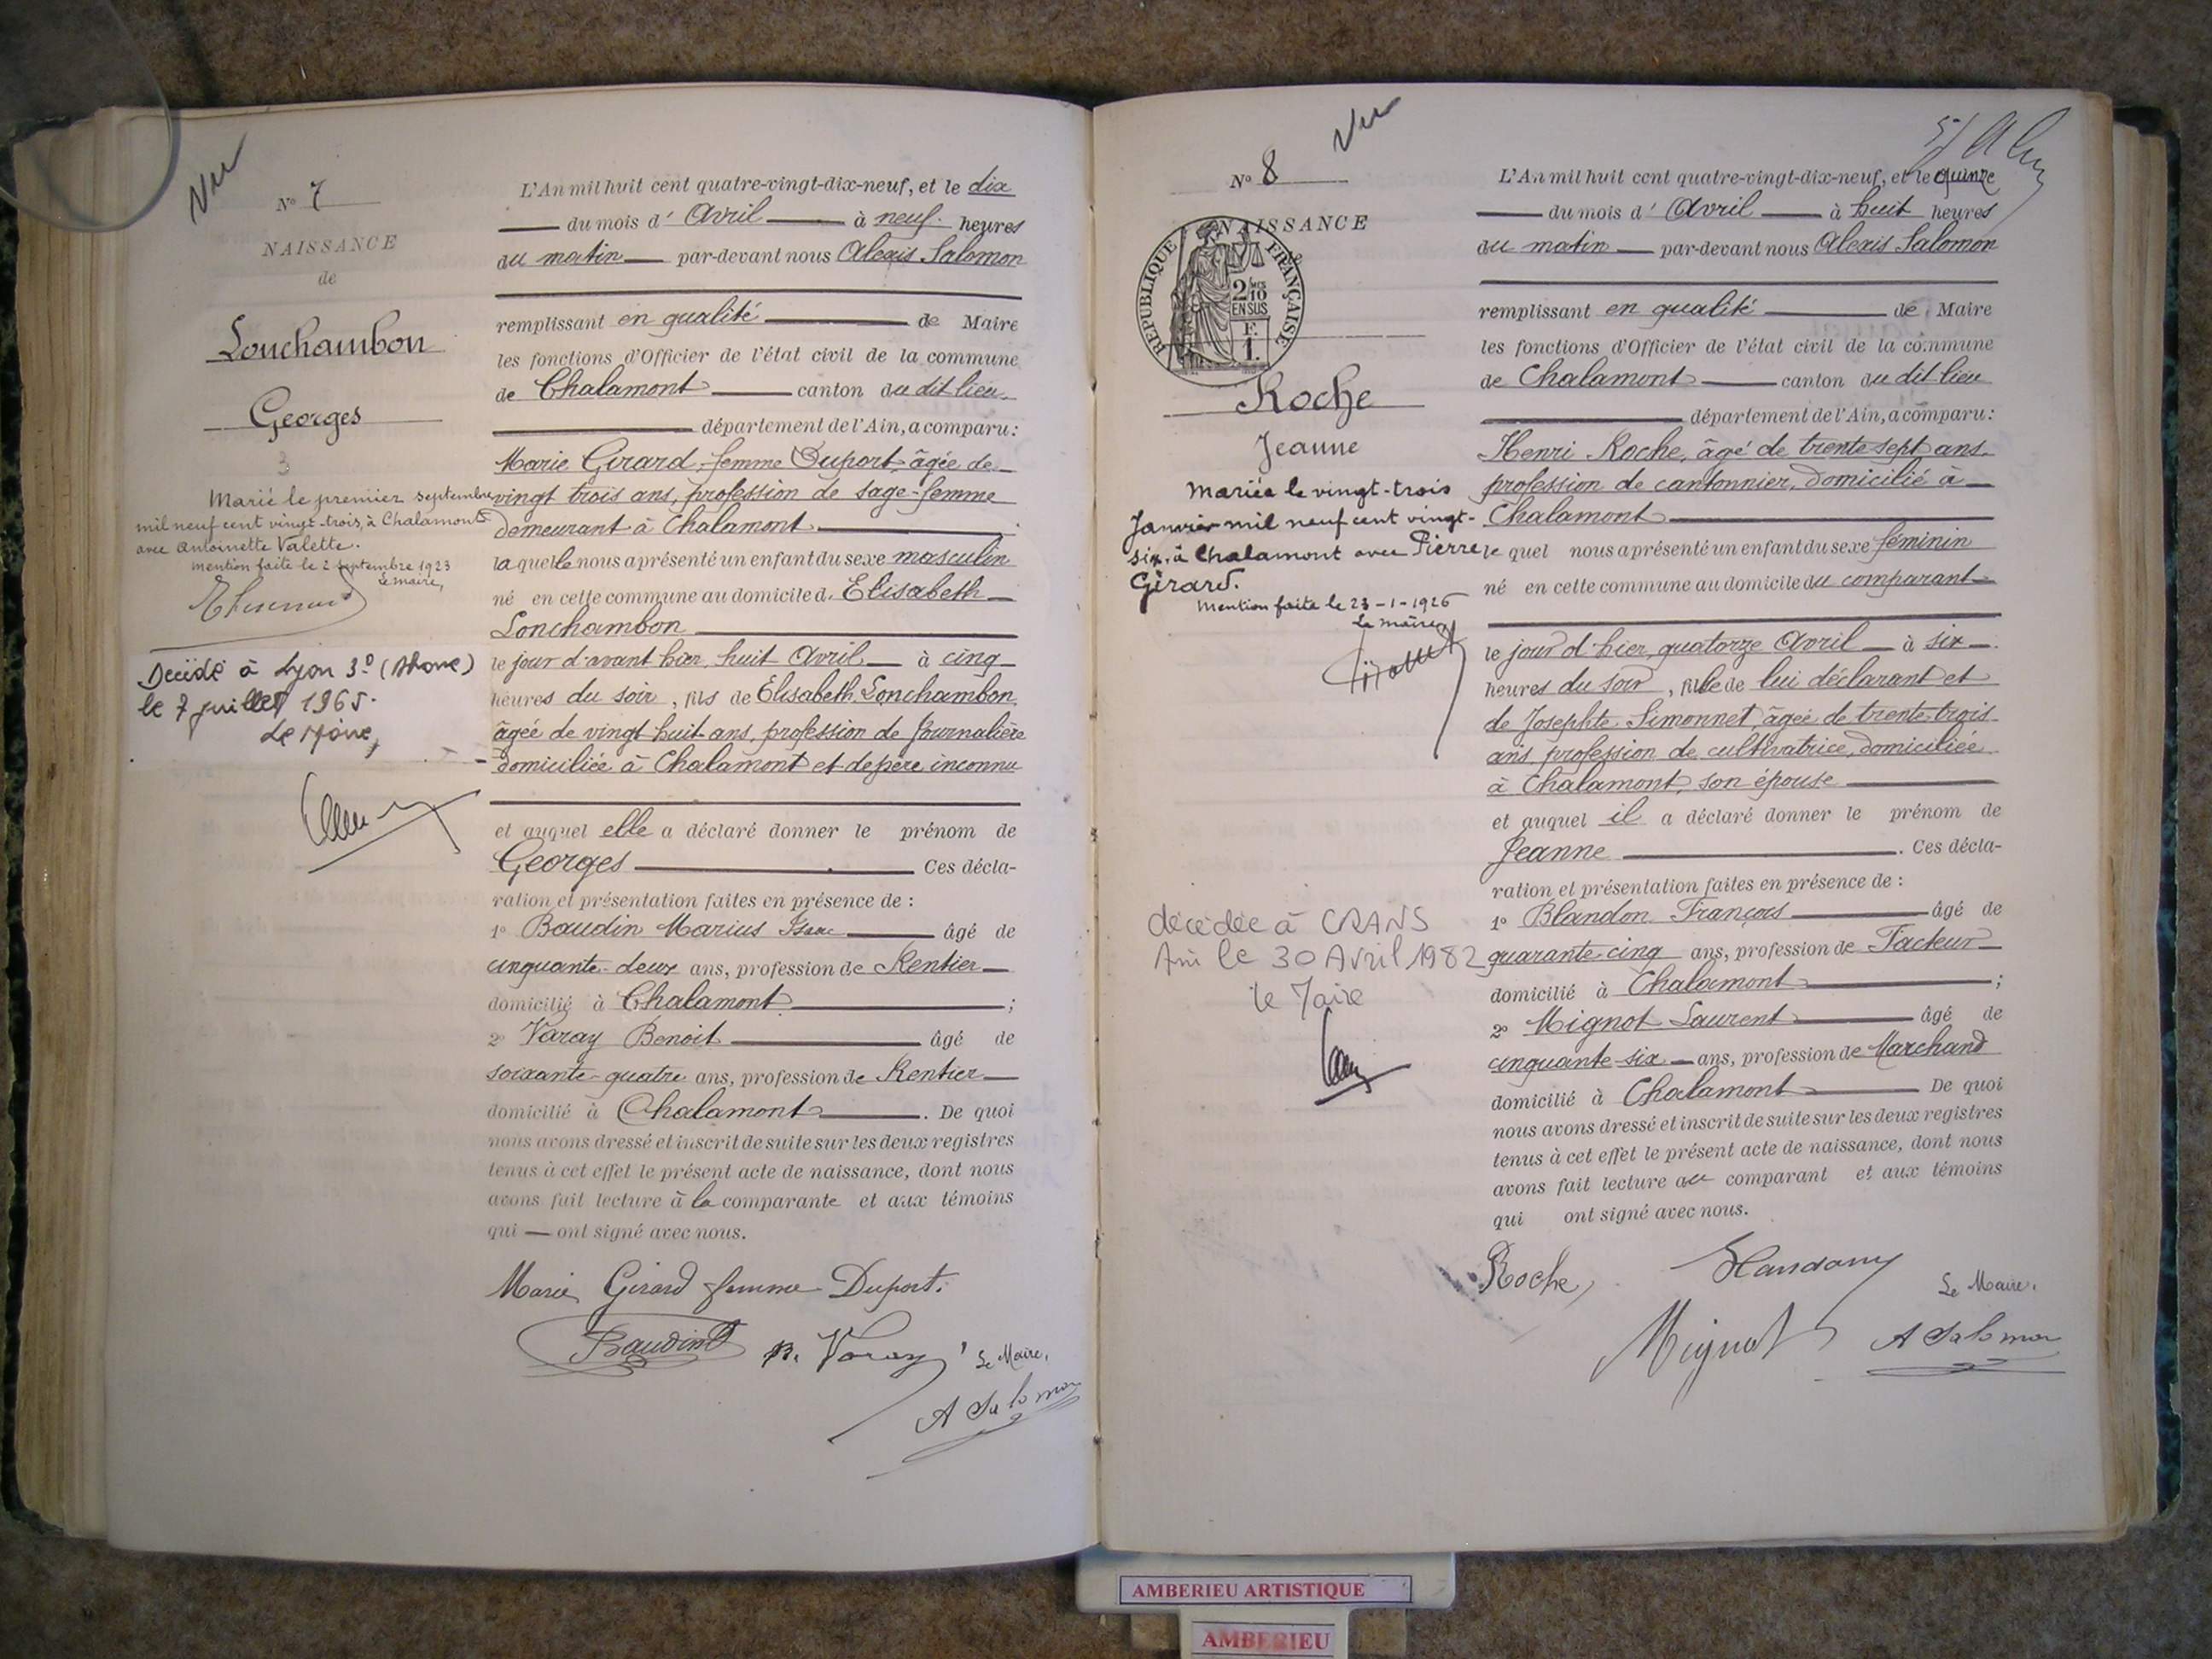 Vu
N° 7
NAISSANCE
de
Lonchambon
Georges
3
Marié le premier septembre
mil neuf cent vingt-trois, à Chalamont
avec Antoinette Valette.
mention faite le 2 septembre 1923
Le maire,
Décédé à Lyon 3e (Rhône)
le 7 juillet 1965.
Le Maire,
L'An mil huit cent quatre-vingt-dix-neuf, et le dix
du mois d' Avril à neuf heures
du matin par-devant nous Alexis Salomon
remplissant en qualité de Maire
les fonctions d'Officier de l'état civil de la commune
de Chalamont canton du dit lieu
département de l'Ain, a comparu :
Marie Girard, femme Duport, âgée de
vingt trois ans, profession de sage-femme
demeurant à Chalamont
laquelle nous a présenté un enfant du sexe masculin
né en cette commune au domicile d' Elisabeth
Lonchambon
le jour d'avant hier, huit Avril à cinq
heures du soir, fils de Elisabeth Lonchambon
âgée de vingt huit ans, profession de Journalière
domiciliée à Chalamont et de père inconnu
et auquel elle a déclaré donner le prénom de
Georges Ces décla-
ration et présentation faites en présence de :
1° Baudin Marius Isaac âgé de
cinquante-deux ans, profession de Rentier
domicilié à Chalamont ;
2° Varay Benoit âgé de
soixante-quatre ans, profession de Rentier
domicilié à Chalamont . De quoi
nous avons dressé et inscrit de suite sur les deux registres
tenus à cet effet le présent acte de naissance, dont nous
avons fait lecture à la comparante et aux témoins
qui — ont signé avec nous.
Marie Girard femme Duport.
Baudin B. Varay Le Maire,
A Salomon
Vu
N° 8
NAISSANCE
RÉPUBLIQUE FRANÇAISE
2/10
EN SUS
F.
1.
Roche
Jeanne
Mariée le vingt-trois
Janvier mil neuf cent vingt-
six, à Chalamont avec Pierre
Girard.
Mention faite le 23-1-1926
Le maire,
décédée à CRANS
Ain le 30 Avril 1982
le Maire
L'An mil huit cent quatre-vingt-dix-neuf, et le quinze
du mois d' Avril à huit heures
du matin par-devant nous Alexis Salomon
remplissant en qualité de Maire
les fonctions d'Officier de l'état civil de la commune
de Chalamont canton du dit lieu
département de l'Ain, a comparu :
Henri Roche, âgé de trente-sept ans
profession de cantonnier, domicilié à
Chalamont
lequel nous a présenté un enfant du sexe féminin
né en cette commune au domicile du comparant
le jour d'hier, quatorze Avril à six
heures du soir, fille de lui déclarant et
de Josephte Simonnet âgée de trente-trois
ans, profession de cultivatrice, domiciliée
à Chalamont, son épouse
et auquel il a déclaré donner le prénom de
Jeanne . Ces décla-
ration et présentation faites en présence de :
1° Blandon François âgé de
quarante-cinq ans, profession de Facteur
domicilié à Chalamont ;
2° Mignot Laurent âgé de
cinquante-six ans, profession de Marchand
domicilié à Chalamont De quoi
nous avons dressé et inscrit de suite sur les deux registres
tenus à cet effet le présent acte de naissance, dont nous
avons fait lecture au comparant et aux témoins
qui ont signé avec nous.
Roche Le Maire.
Mignot A Salomon
AMBERIEU ARTISTIQUE
AMBERIEU